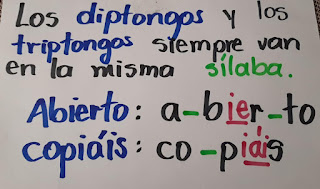 Los diptongos y los
triptongos siempre van
en la misma sílaba.
Abierto: a-bier-to
copiáis: co-piáis